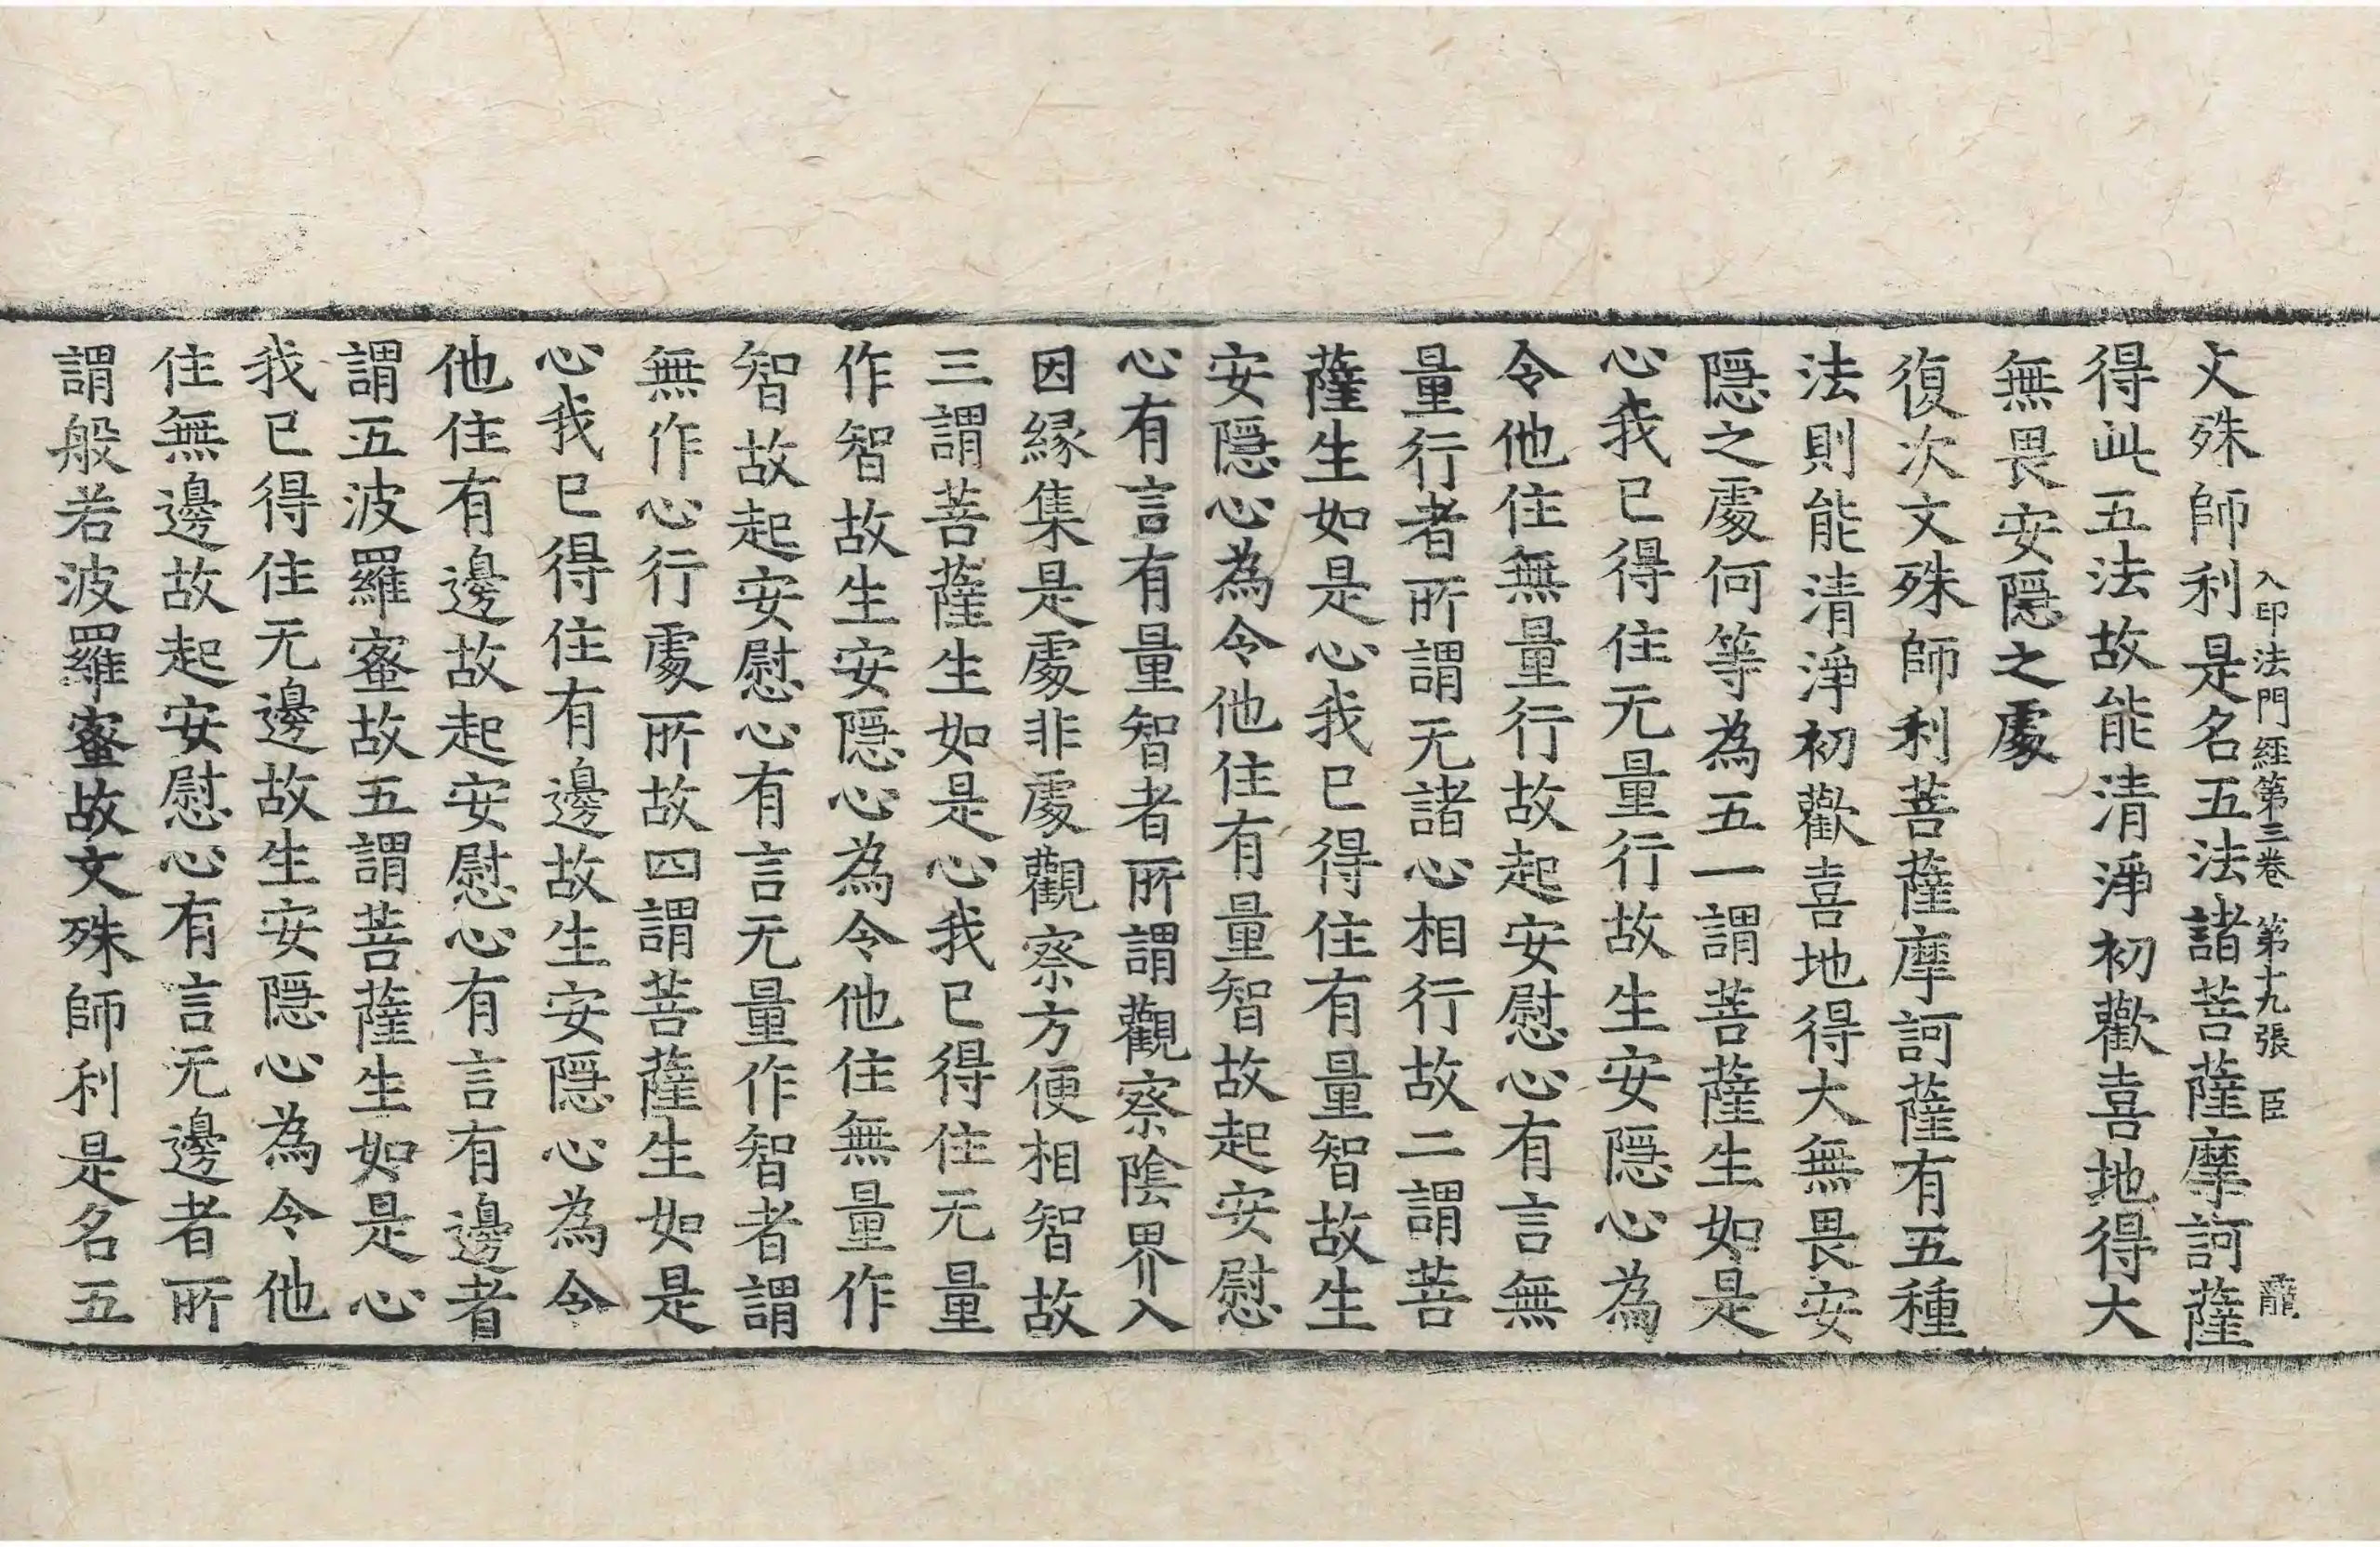 入印法門經第三卷 第十九張 臣 龗
文殊師利是名五法諸菩薩摩訶薩
得此五法故能清淨初歡喜地得大
無畏安隱之處
復次文殊師利菩薩摩訶薩有五種
法則能清淨初歡喜地得大無畏安
隱之處何等為五一謂菩薩生如是
心我已得住无量行故生安隱心為
令他住無量行故起安慰心有言無
量行者所謂无諸心相行故二謂菩
薩生如是心我已得住有量智故生
安隱心為令他住有量智故起安慰
心有言有量智者所謂觀察陰界入
因縁集是處非處觀察方便相智故
三謂菩薩生如是心我已得住无量
作智故生安隱心為令他住無量作
智故起安慰心有言无量作智者謂
無作心行處所故四謂菩薩生如是
心我已得住有邊故生安隱心為令
他住有邊故起安慰心有言有邊者
謂五波羅蜜故五謂菩薩生如是心
我已得住无邊故生安隱心為令他
住無邊故起安慰心有言无邊者所
謂般若波羅蜜故文殊師利是名五